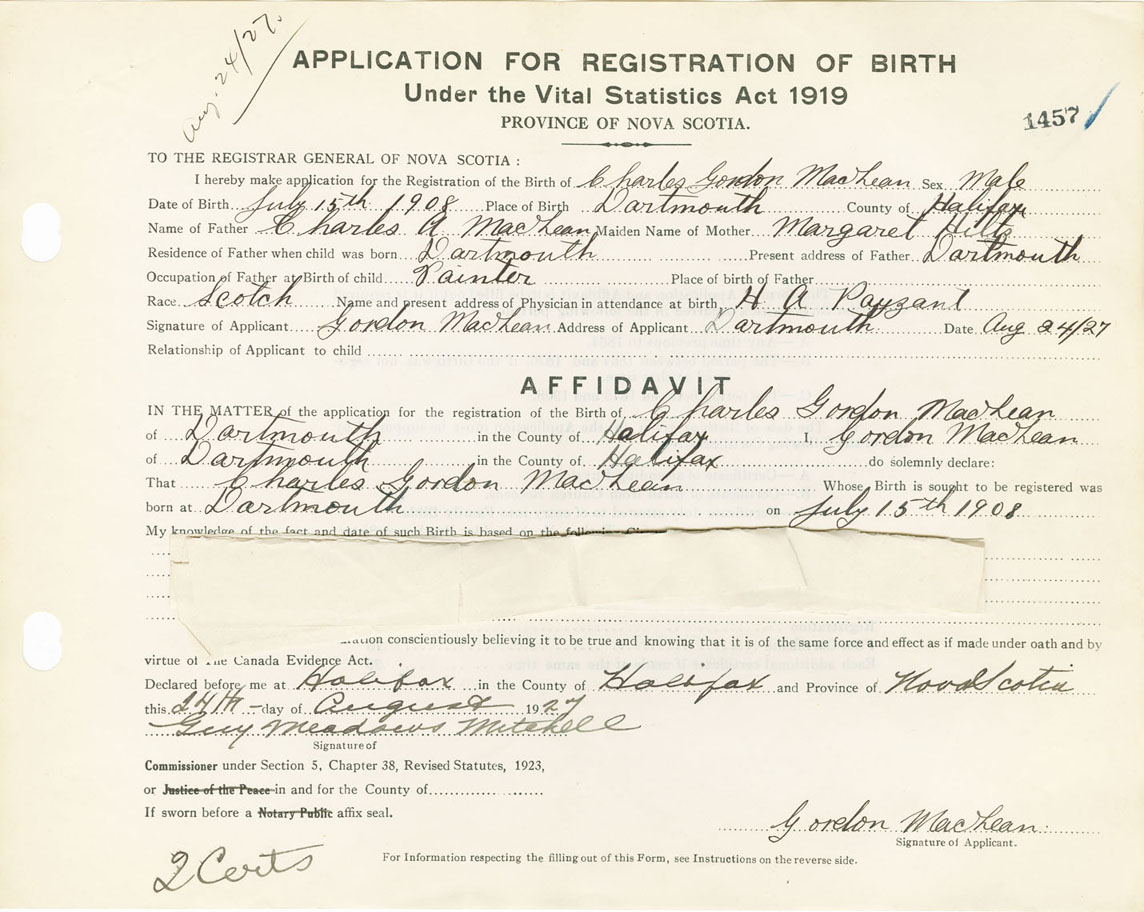 Aug. 24/27.
APPLICATION FOR REGISTRATION OF BIRTH
Under the Vital Statistics Act 1919
PROVINCE OF NOVA SCOTIA.
1457
TO THE REGISTRAR GENERAL OF NOVA SCOTIA :
I hereby make application for the Registration of the Birth of Charles Gordon MacLean Sex Male
Date of Birth July 15th 1908 Place of Birth Dartmouth County of Halifax
Name of Father Charles A MacLean Maiden Name of Mother Margaret Hiltz
Residence of Father when child was born Dartmouth Present address of Father Dartmouth
Occupation of Father at Birth of child Painter Place of birth of Father
Race Scotch Name and present address of Physician in attendance at birth H A Payzant
Signature of Applicant Gordon MacLean Address of Applicant Dartmouth Date Aug 24/27
Relationship of Applicant to child
AFFIDAVIT
IN THE MATTER of the application for the registration of the Birth of Charles Gordon MacLean
of Dartmouth in the County of Halifax I, Gordon MacLean
of Dartmouth in the County of Halifax do solemnly declare:
That Charles Gordon MacLean Whose Birth is sought to be registered was
born at Dartmouth on July 15th 1908
My knowledge of the fact and date of such Birth is based on the following
conscientiously believing it to be true and knowing that it is of the same force and effect as if made under oath and by
virtue of the Canada Evidence Act.
Declared before me at Halifax in the County of Halifax and Province of Nova Scotia
this 24th day of August 1927
Guy Meadows Mitchell
Signature of
Commissioner under Section 5, Chapter 38, Revised Statutes, 1923,
or Justice of the Peace in and for the County of
If sworn before a Notary Public affix seal.
Gordon MacLean
Signature of Applicant.
For Information respecting the filling out of this Form, see Instructions on the reverse side.
2 Certs